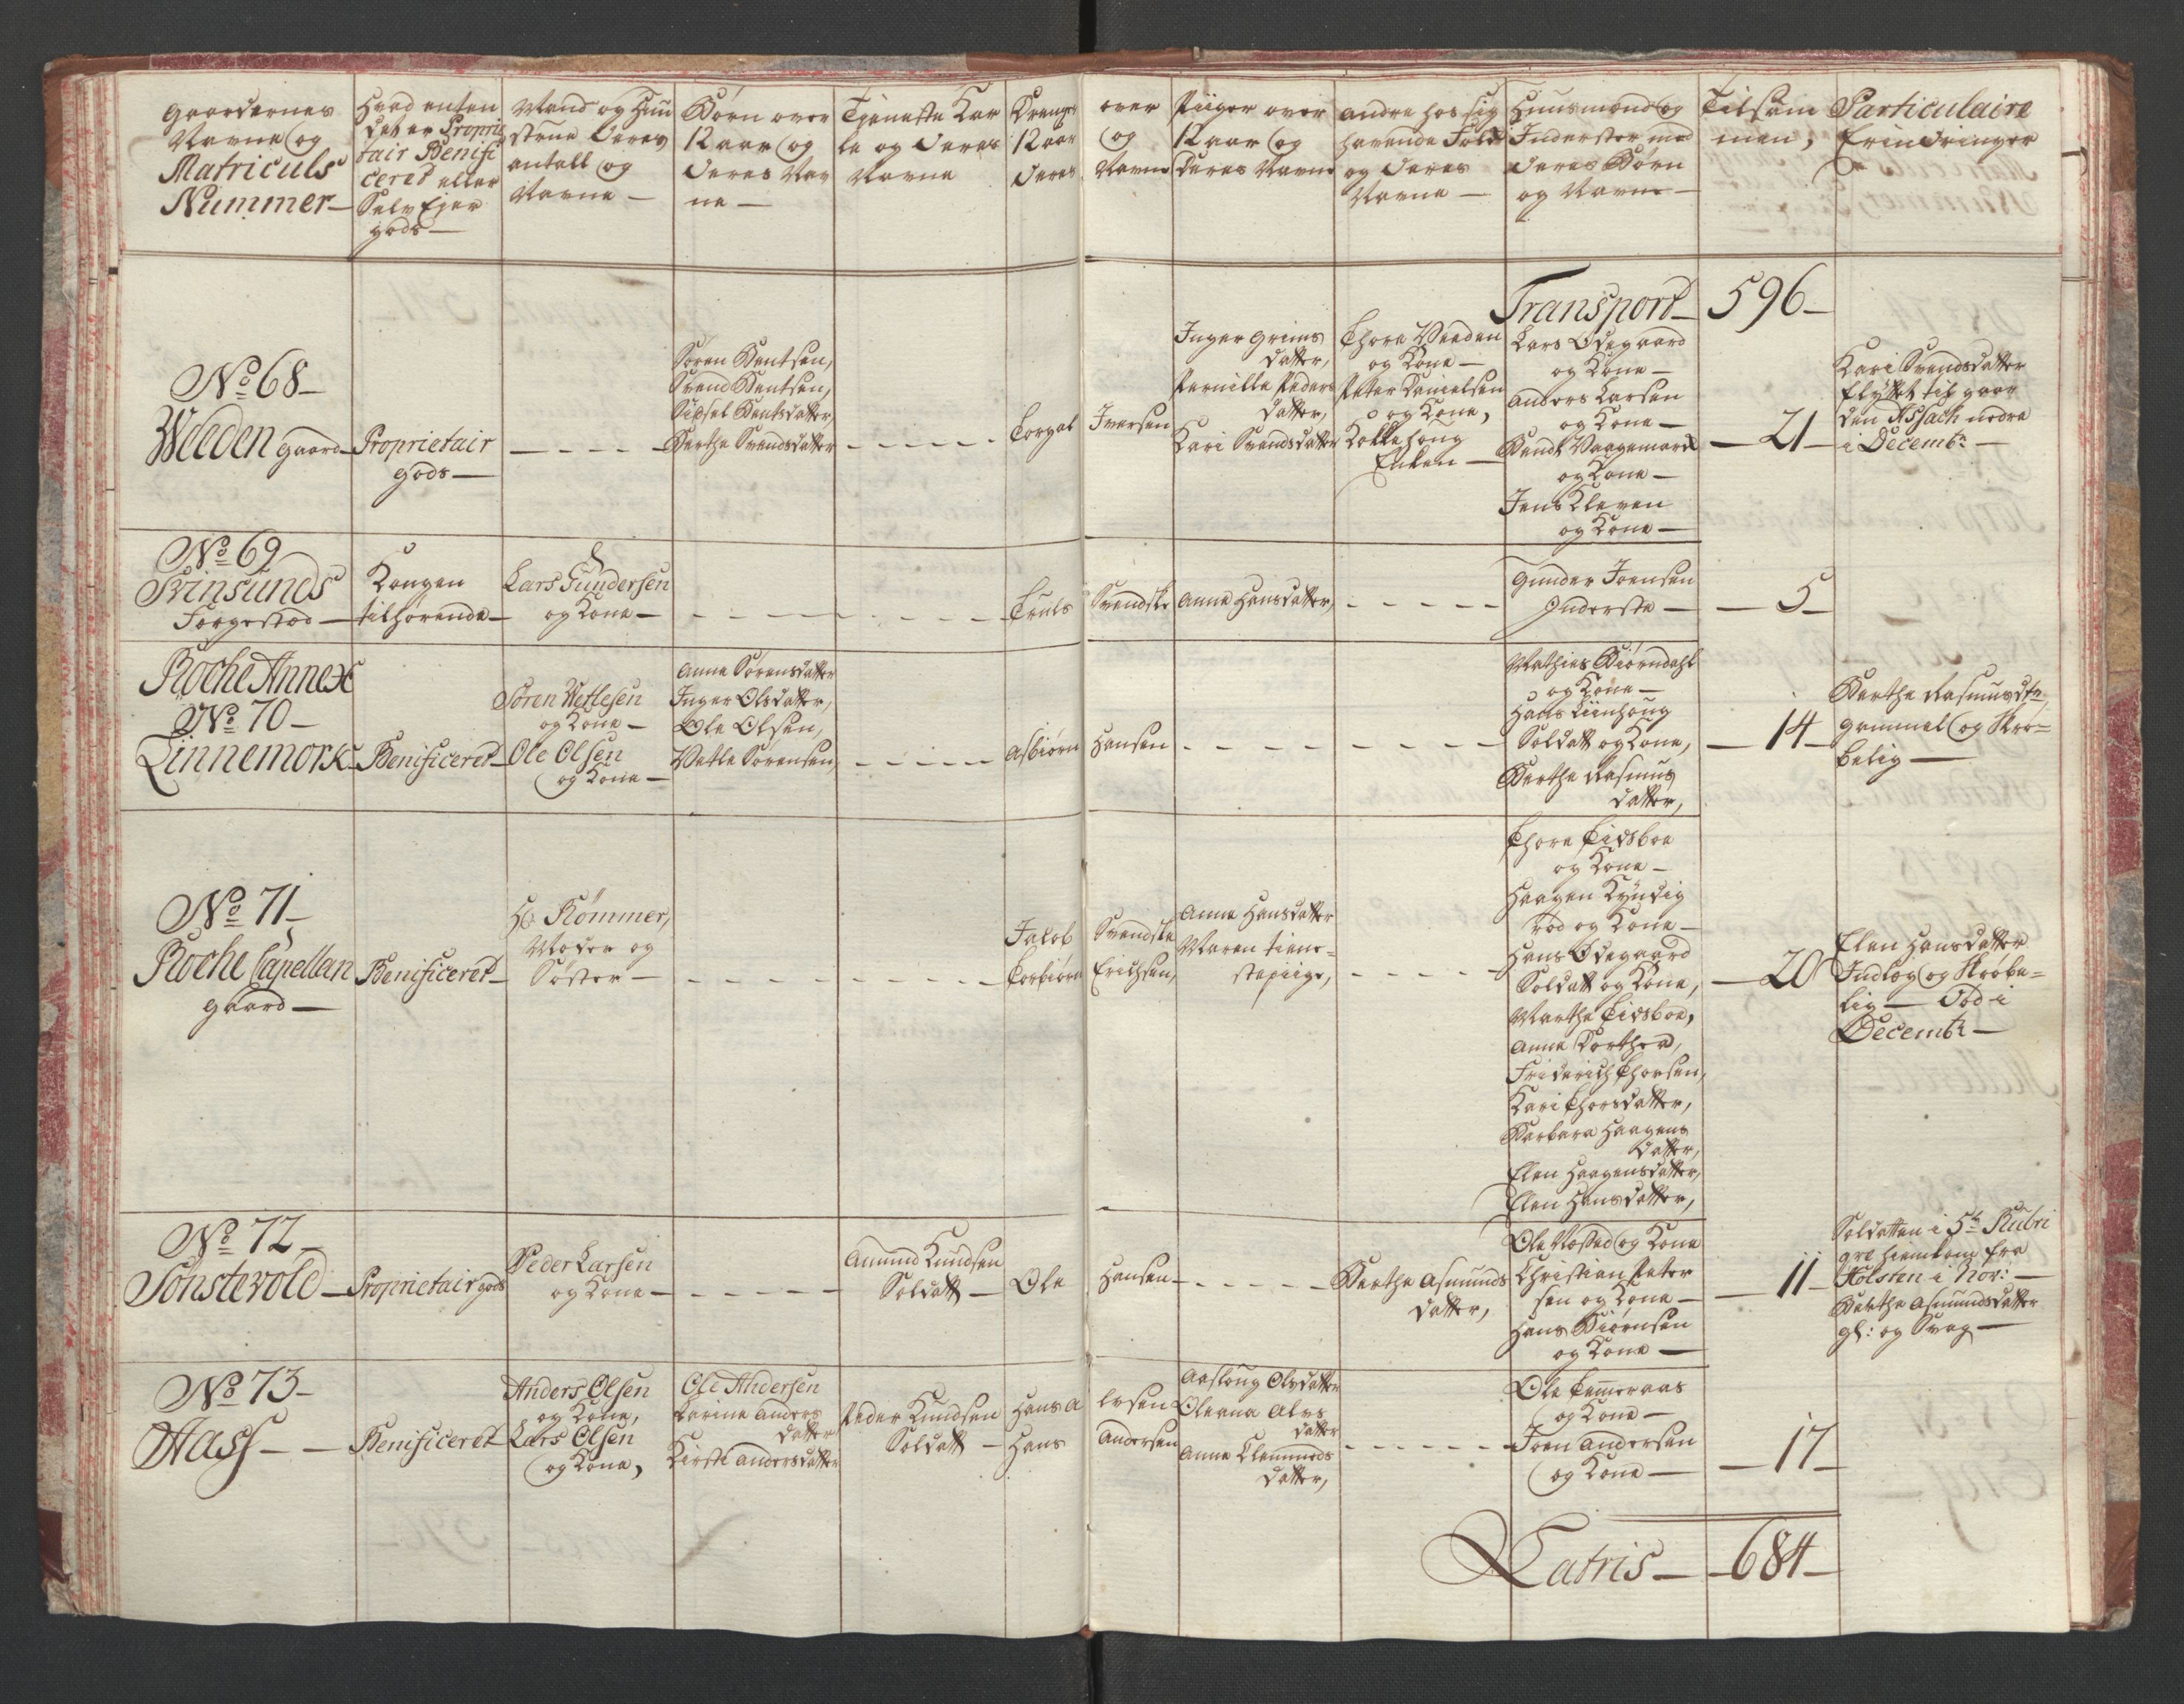 Gaardernes
Navne og
Matriculs
Nummer—
Hvad enten
det er Propri
tair Benifi
ceret eller
Selv Ejer
gods—
Mand og Huu
struе deres
antall og
Navne —
Børn over
12 aar og
deres Nav
ne —
Tjeneste Kar
le og deres
Navne
Drenge over
12 aar og
deres Navne
Piiger over
12 aar og
deres Navne
andre hos sig
havende Folk
og deres
Navne —
Huusmænd og
Inderster med
deres Børn
og Navne —
Tilsam
men,
Particulaire
Erindringer
Transport— 596—
No 68—
Weeden gaard—
Proprietair
gods—
Søren Bentsen,
Svend Bentsen,
Sidsel Bentsdatter,
Berthe Svendsdatter
Torgal Iversen
Inger Grims
datter,
Pernille Peders
datter,
Kari Svendsdatter
Thore Veeden
og Kone—
Peter Danielsen
og Kone,
Enken—
Lars Ødegaard
og Kone—
Anders Larsen
og Kone—
Bendt
og Kone—
Jens Kleven
og Kone—
—21—
Kari Svendsdatter
flyttet til gaar
den Assach nedre
i Decembr: —
No 69
Svinsunds
Færgestad—
Kongen
tilhørende—
Lars Gundersen
og Kone—
Truls Svendske
Anne Hansdatter,
Gunder Joensen
Inderste—
—5—
Roche Annex
No 70—
Linnemork—
Benificeret—
Søren Wetlesen
og Kone—
Ole Olsen
og Kone—
Anne Sørensdatter
Inger Olsdatter,
Ole Olsen,
Vetle Sørensen,
Asbiørn Hansen
Mathies Biørndahl
og Kone—
Hans Liinhoug
Soldatt og Kone,
Berthe Rasmus
datter,
—14—
Berthe Rasmusdtr,
gammel og Skrø=
belig—
No 71—
Roche Capellan
gaard—
Benificeret—
Hr Römmer,
Moder og
Søster—
Jacob Svendske
Torbiørn Erichsen,
Anne Hansdatter
Maren tiene=
stepiige,
Thore Tidsboe
og Kone—
Haagen Kyndig
rød og Kone—
Hans Ødegaard
Soldatt og Kone,
Marthe Tidsboe,
Anne Dorthea,
Friderich Thorsen,
Kari Thorsdatter,
Barbara Haagens
datter,
Elen Haagensdatter,
Elen Hansdatter,
—20
Elen Hansdatter
Indlog og Skrøbe=
lig— Død i
Decembr—
No 72—
Sonstevold—
Proprietair gods
Peder Larsen
og Kone—
Amund Knudsen
Soldatt—
Ole Hansen—
Berthe Asmunds
datter,
Ole Næstad og Kone
Christian Peter
sen og Kone—
Hans Biørnsen
og Kone—
—11—
Soldatten i 5te Rubri
qve hiemkom fra
Holsten i Nov: —
Berthe Asmundsdatter
gl: og Svag—
No 73—
Aass— —
Benificeret—
Anders Olsen
og Kone,
Lars Olsen
og Kone,
Ole Andersen
Karine Anders
datter
Kirsti Andersdatter
Peder Knudsen
Soldatt—
Hans A lvsen
Hans Andersen
Aasloug Olsdatter
Oleana Alvs
datter
Anne Clemmeds
datter,
Ole Temmeraas
og Kone—
Joen Andersen
og Kone—
—17—
Latris— —684—